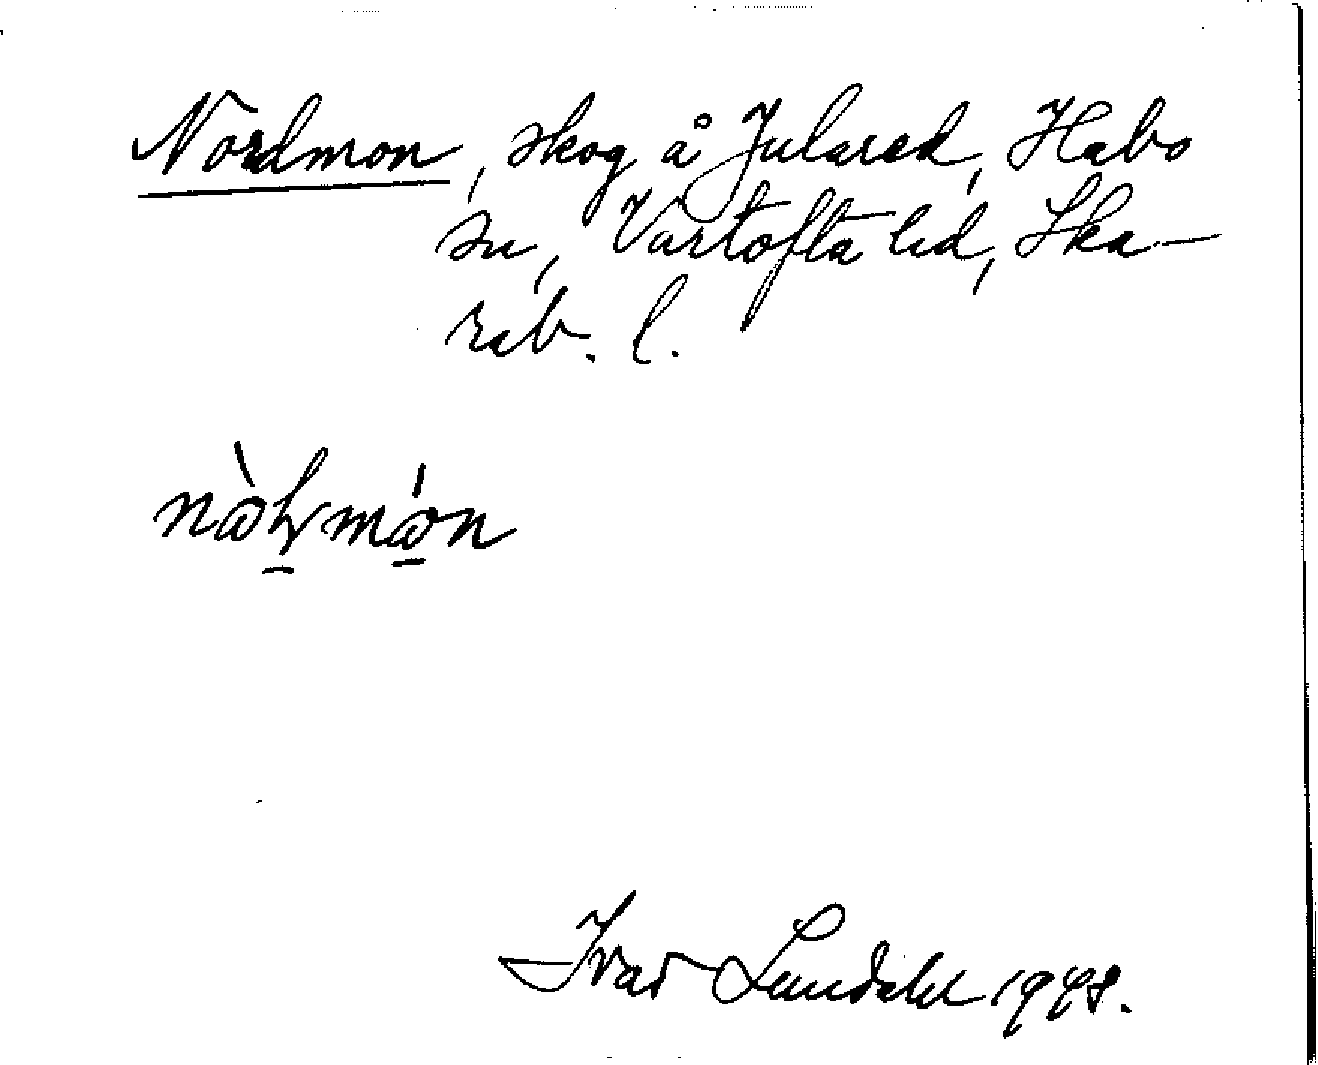 Nordmon, skog å Julared, Habo
sn, Vartofta hd, Ska-
rab. l.
Ivar Lundahl 1948.